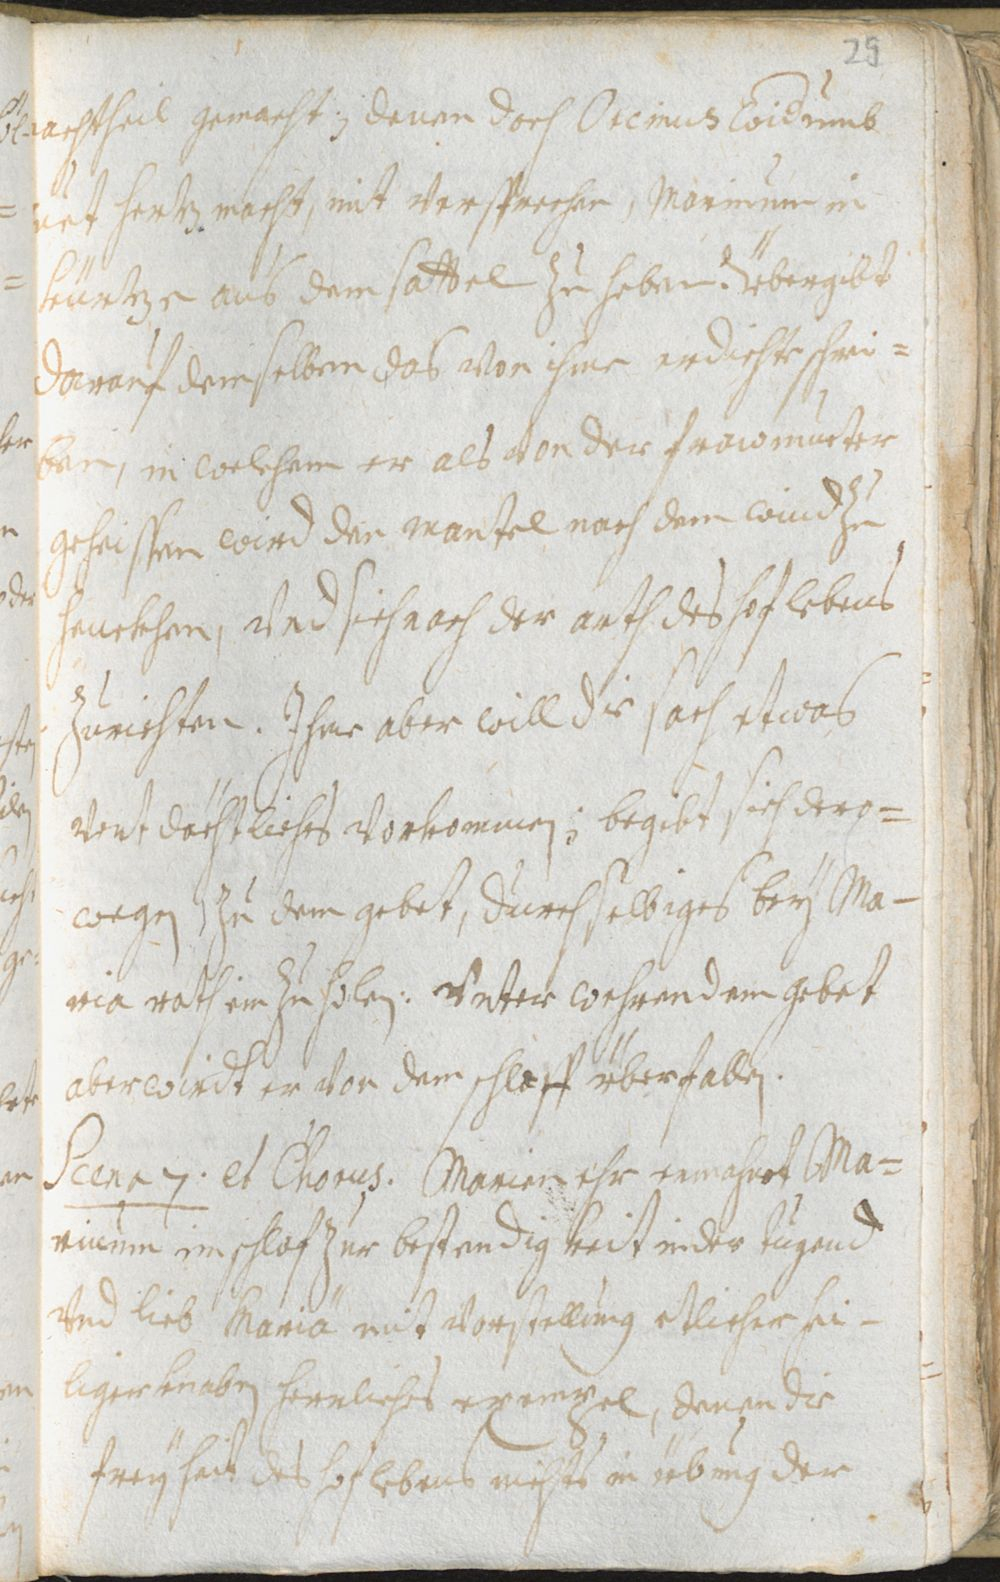 29
nachtheil gemacht; denen doch Ocimus widumb
ret hertz macht, mit versprechen, Marinum in
kürtze aus dem sattel zu heben. übergibt
darauf demselben das von ihme erdichte schrei=
ben, in welchem er als von der fraw mutter
geheissen wird den mantel nach dem wind zu
henckhen, und sich nach der arth des hoflebens
zurichten. Ihme aber will die sach etwas
verdächtliches vorkommen; begibt sich dero=
wegen zu dem gebet, durch selbiges bey Ma-
ria rath ein zu holen. Unter wehrendem gebet
aber wirdt er von dem schlaff überfallen.
Scena 7. et Chorus. Marien ehr ermahnt Ma=
rinum im schlaf zur bestendigkeit in der tugend
und lieb Mariä mit vorstellung etlicher hei-
liger knaben herrliches exempel, denen die
freyheit des hoflebens nichts in übung der